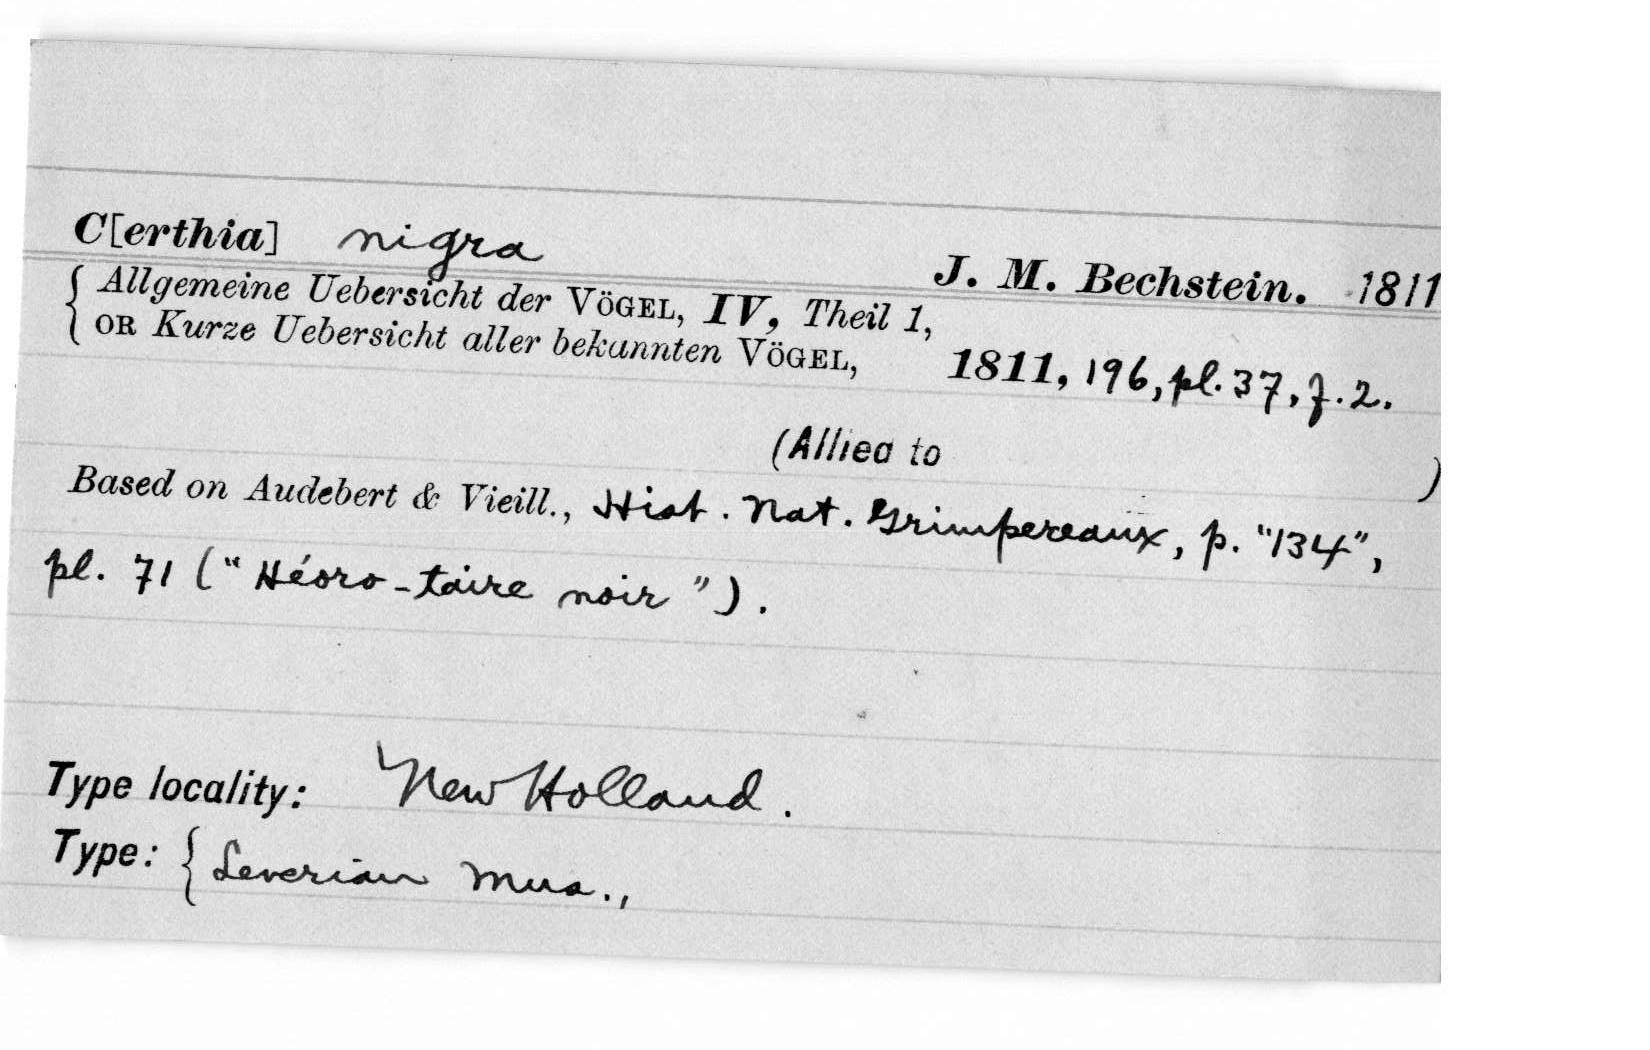 C[erthia] nigra J. M. Bechstein. 1811
{ Allgemeine Uebersicht der VÖGEL, IV, Theil 1,
OR Kurze Uebersicht aller bekannten VÖGEL, 1811, 196, pl. 37, f. 2.
(Allied to )
Based on Audebert & Vieill., Hist. Nat. Grimpereaux, p. "134",
pl. 71 ("Héoro-taire noir").
Type locality: New Holland.
Type: { Leverian Mus.,